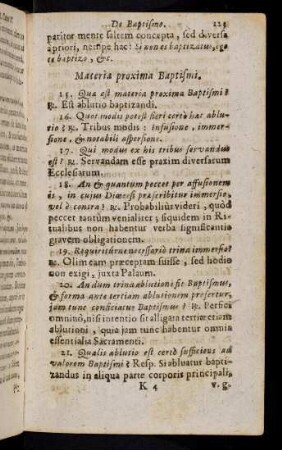 De Baptismo. 223
paritor mente saltem concepta, sed diversa
apriori, nempe hæc: Si non es baptizatus, ego
te baptizo, &c.
Materia proxima Baptismi.
15. Quæ est materia proxima Baptismi?
℟. Est ablutio baptizandi.
16. Quot modis potest fieri certò hæc ablu-
tio? ℟. Tribus modis: infusione, immer-
sione, & notabili aspersione.
17. Qui modus ex his tribus servandus
est? ℟. Servandam esse praxim diversarum
Ecclesiarum.
18. An & quantum peccet per affusionem
is, in cujus Diœcesi præscribitur immersio,
vel è contra? ℟. Probabilius videri, quòd
peccet tantùm venialiter; siquidem in Ri-
tualibus non habentur verba significantia
gravem obligationem.
19. Requiritur ne necessariò trina immersio?
℟. Olim eam præceptam fuisse, sed hodie
non exigi, juxta Palaum.
20. An dum trinâ ablutione fit Baptismus,
& forma ante tertiam ablutionem profertur,
jam tunc conficiatur Baptismus? ℟. Perfici
omninò, nisi intentio sit alligata tertiæ etiam
ablutioni, quia jam tunc habentur omnia
essentialia Sacramenti.
21. Qualis ablutio est certò sufficiens ad
valorem Baptismi? Resp. Si abluatur bapti-
zandus in aliqua parte corporis principali,
K 4 v. g.